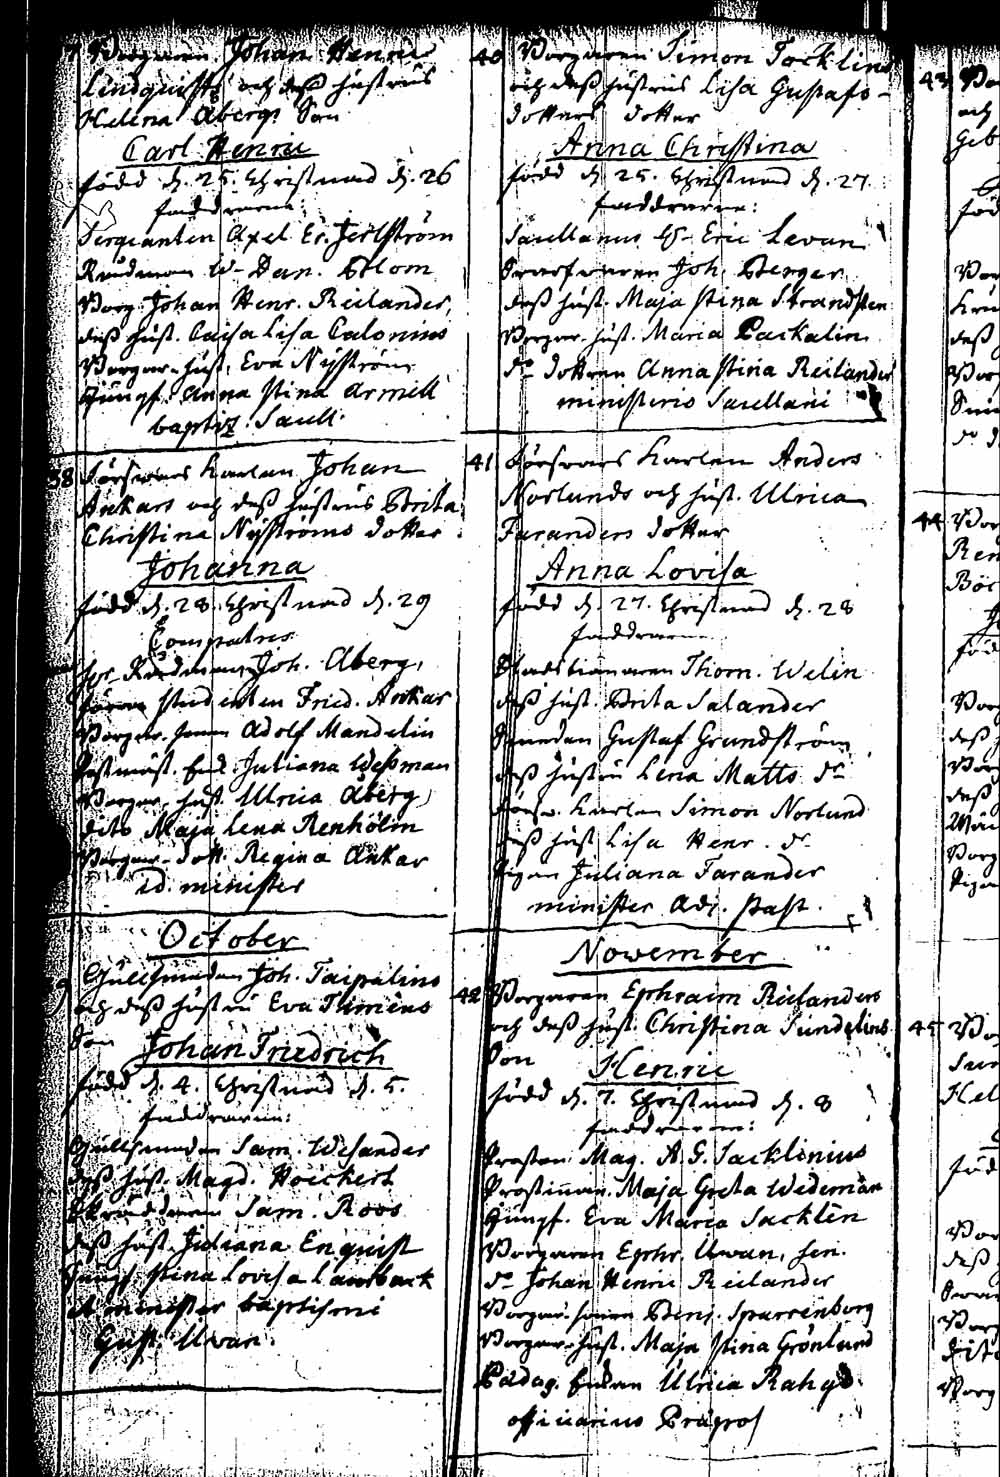 7 Borgaren Johan Henric
Lindquists och dess hustrus
Helena Åbergs Son
Carl Henric
född d. 25. Christnad d. 26
faddrarne:
Sergianten Axel Er. Jertström
Rådman W- Dan. Blom
Borg. Johan Henr. Reilander,
dess hust. Caisa Lisa Calonius
Borgar-hust. Eva Nyström
Jungf. Anna Stina Armell
baptiz. Sacell.
38 Försvars Karlen Johan
Ankars och dess hustrus Brita
Christina Nyströms dotter
Johanna
född d. 28. Christnad d. 29
Compatres
Hr Rådman Joh. Åberg,
Studenten Fried. Ankar
Borgar-sonen Adolf Mandelin
Postmäst. Enk. Juliana Wessman
Borgar-hust. Ulrica Åberg
dito Maja Lena Renholm
Borgar-dott. Regina Ankar
id. minister
October
9 Gullsmeden Joh. Taipalins
och dess hustru Eva Thmeus
Son
Johan Friedrich
född d. 4. Christnad d. 5.
faddrarne:
Gullsmeden Sam. Wesander
dess hust. Magd. Hoickert
Skräddaren Sam. Roos
dess hust. Juliana Enquist
Jungf. Stina Lovisa Lamback
minister baptismi
Gust. Uwan.
40 Borgaren Simon Tocklins
och dess hustrus Lisa Gustafs-
dotters dotter
Anna Christina
född d. 25. Christnad d. 27.
faddrarne:
Sacellanus H- Eric Levan
Joh. Berger
dess hust. Maja Stina Strandsten
Borgar-hust. Maria Packalin
do dottren Anna Stina Reilander
ministerio Sacellani
41 Försvars Karlen Anders
Norlunds och hust. Ulrica
Faranders dotter
Anna Lovisa
född d. 27. Christnad d. 28
faddrarne
Stadstienaren Thom. Welin
dess hust. Brita Salander
Smeden Gustaf Grundström
dess hustru Lena Matts dr
Försv. Karlen Simon Norlund
dess hust. Lisa Henr. dr
Pigan Juliana Farander
minister Adj. Past.
November
42 Borgaren Ephraim Reilanders
och dess hust. Christina Sundelins
Son
Henric
född d. 7. Christnad d. 8
faddrarne:
Prosten Mag. A G. Sacklinius
Prostinnan Maja Greta Wideman
Jungf. Eva Maria Sacklèn
Borgaren Ephr. Uwan, sen.
do Johan Henric Reilander
Borgar-sonen Benj. Sparrenborg
Borgar-hust. Maja Stina Grönlund
Pædag. Enkan Ulrica
officiarius Præpos
43
och
Geb
föd
dess
44 Bor
Ren
Böc
föd
Borg
dess
dess
Borg
Pigan
45 Bo
Hel
föd
Bor
dess
Borg
dito
Borg